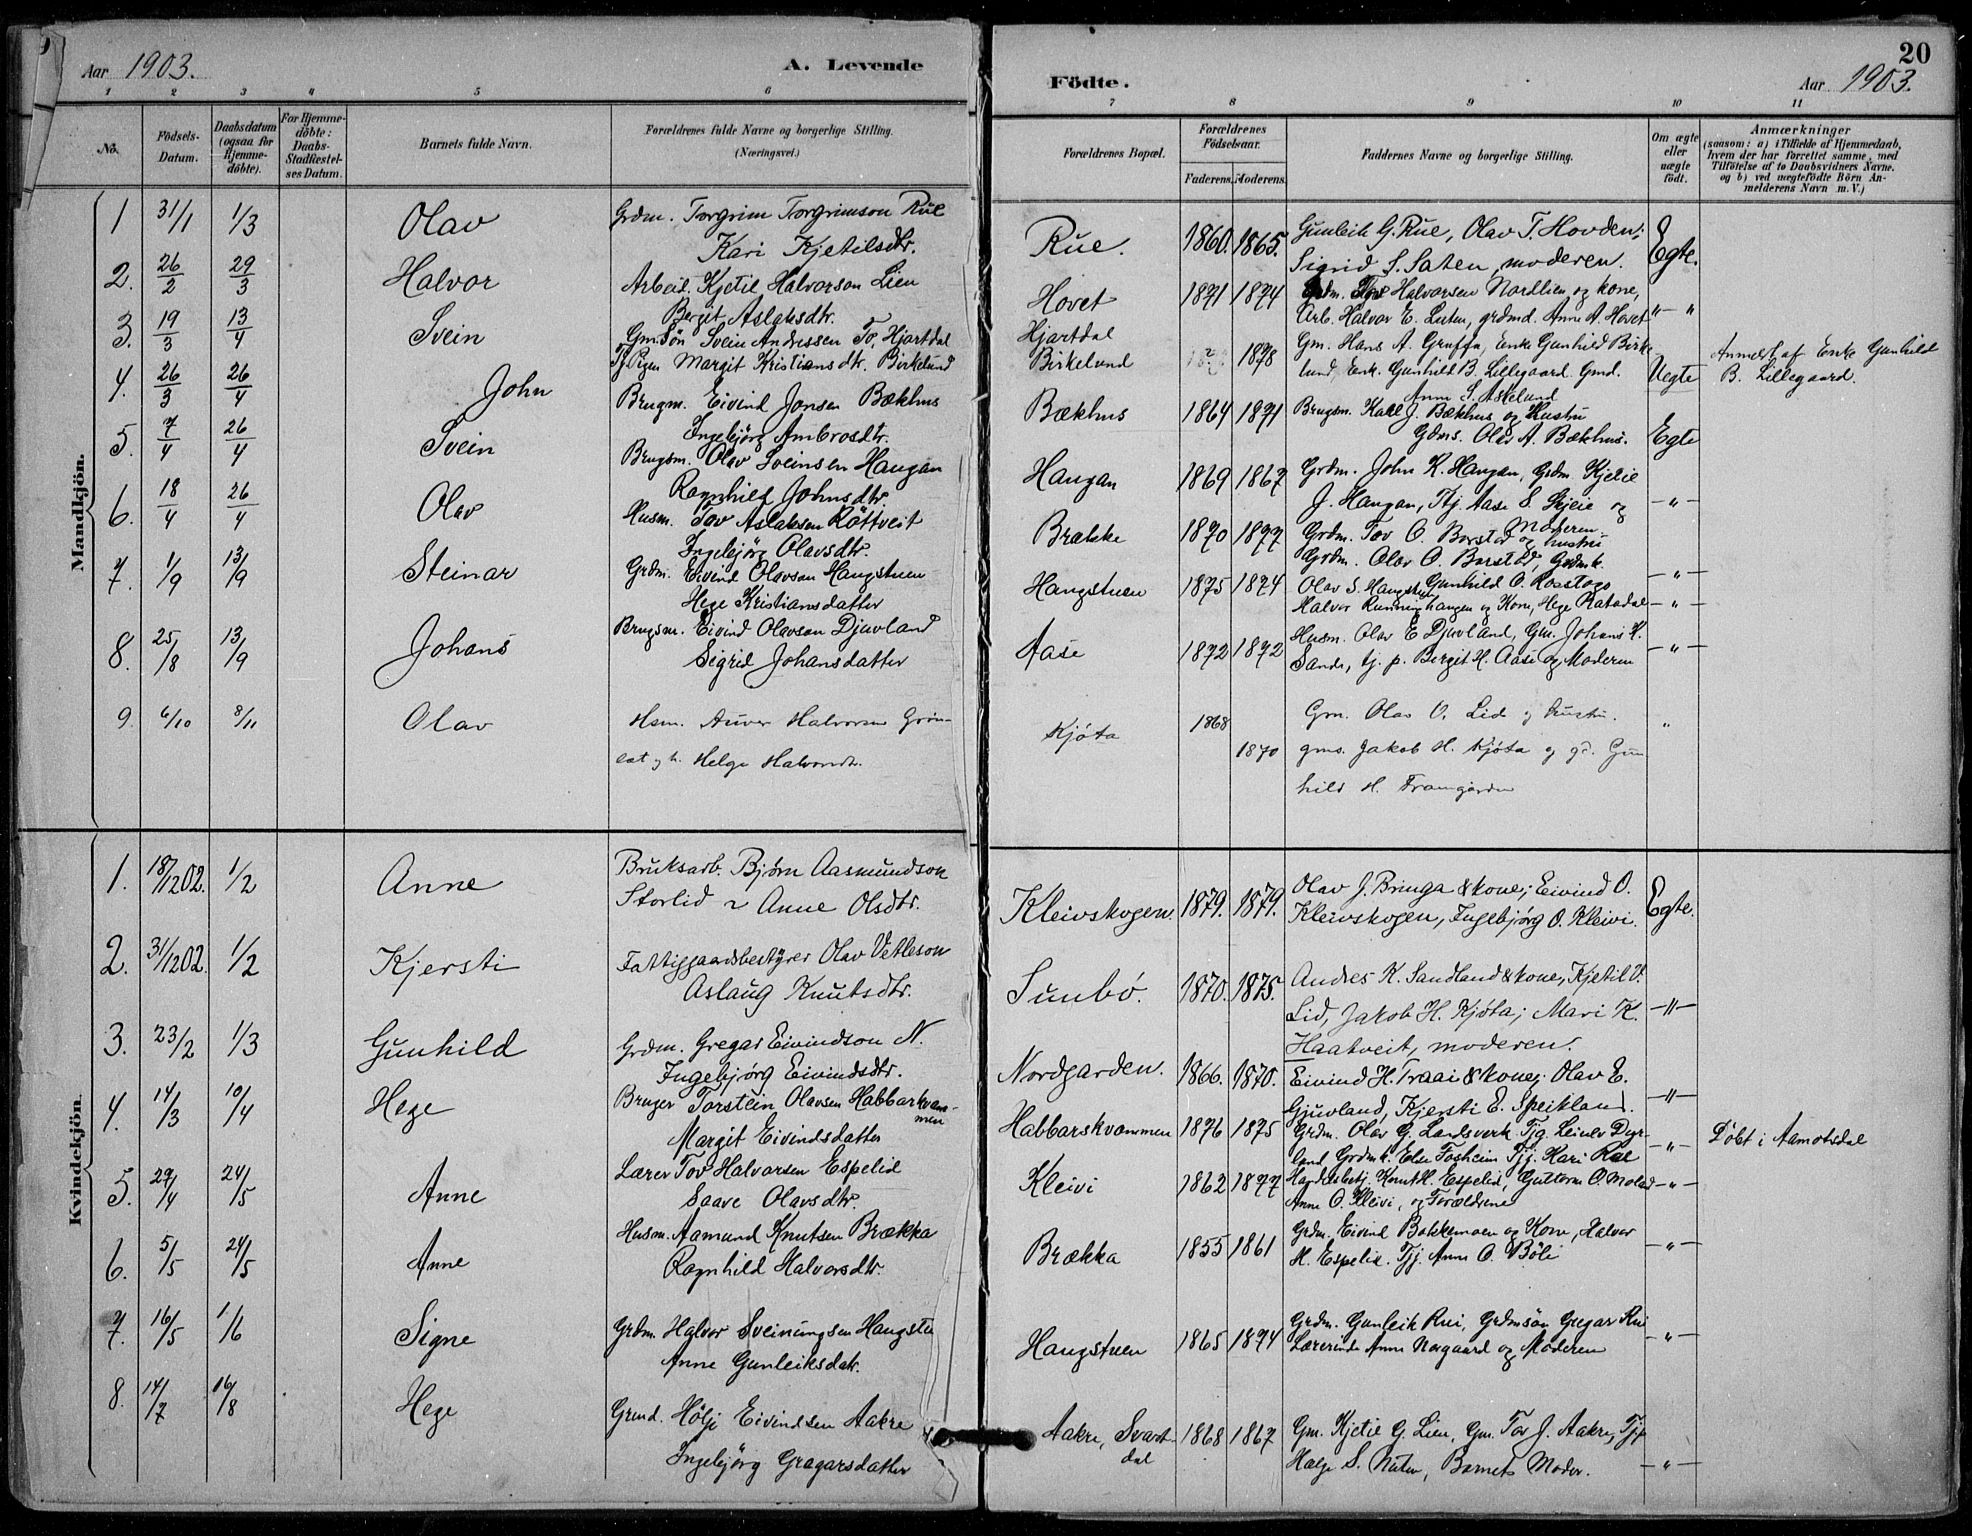 Aar 1903.
A. Levende
1 2 3 4 5 6
No.
Födsels-
Datum.
Daabsdatum
(ogsaa for
Hjemme-
döbte).
For Hjemme-
döbte:
Daabs-
Stadfæstel-
ses Datum.
Barnets fulde Navn.
Forældrenes fulde Navne og borgerlige Stilling.
(Næringsvei.)
Mandkjön.
1 31/1 1/3 Olav Grdm. Torgrim Torgrimson Rue
Kari Kjetilsdtr.
2. 26/2 29/3 Halvor Arbeid. Kjetil Halvorson Lien
Bergit Aslaksdtr.
3. 19/3 13/4 Svein Gm.Søn Svein Andressen Tv. Hjartdal
Tj. Pigen Margit Kristiansdtr. Birkelund
4. 26/3 26/4 John Brugm. Eivind Jonsen Bækhus
Ingebjörg Ambrosdtr.
5. 7/4 26/4 Svein Brugsm. Olav Sveinsen Haugan
Ragnhild Johnsdtr
6. 18/4 26/4 Olav Husm. Tov Aslaksen Röttveit
Ingebjörg Olavsdtr.
7. 1/9 13/9 Steinar Grdm. Eivind Olavson Haugstuen
Hege Kristiansdatter
8. 25/8 13/9 Johans Brugsm. Eivind Olavson Djuvland
Sigrid Johansdatter
9. 6/10 8/11 Olav Hsm. Halvorsen Grön-
og h. Helge Halvorsdtr.
Kvindekjön.
1. 18/12 02. 1/2 Anne Bruksarb. Bjørn Aasmundson
Storlid ~ Anne Olsdtr.
2. 31/12 02. 1/2 Kjersti Fattiggaardsbestyrer Olav Vetleson
Aslaug Knutsdtr.
3. 23/2 1/3 Gunhild Grdm. Gregar Eivindson N.
Ingebjørg Eivindsdtr.
4. 14/3 10/4 Hege Bruger Torstein Olavsen Habbarskvam-
men
Margit Eivindsdatter
5. 29/4 24/5 Anne Lærer Tov Halvorsen Espelid
Saave Olavsdtr.
6. 5/5 24/5 Anne Husm. Aamund Knutsen Brækka
Ragnhild Halvorsdtr.
7. 16/5 1/6 Signe Grdm. Halvor Sveinungsen Haugstu
Anne Gunleiksdatr.
8. 14/7 16/8 Hege Grmd. Hölje Eivindsen Aakre
Ingebjörg Gregarsdatter
20
Födte.
Aar 1903.
7 8 9 10 11
Forældrenes Bopæl.
Forældrenes
Födselsaar.
Faderens. Moderens.
Faddernes Navne og borgerlige Stilling.
Om ægte
eller
uægte
födt.
Anmærkninger
(saasom: a) i Tilfælde af Hjemmedaab,
hvem der har forrettet samme, med
Tilföielse af to Daabsvidners Navne.
og b) ved uægtefödte Börn An-
melderens Navn m. V.)
Rue. 1860. 1865. Gunleik G. Rue, Olav T. Hovden;
Sigrid S. Saten, moderen. Egte.
Hovet 1871 1874 Grdm. Halvorsen Nordlien og kone,
Arb. Halvor E. Luten, grdmd. Anne A. Hovet "
Hjartdal
Birkelund 1878 Gm. Hans A. Gruffa, Enke Gunhild Birke
lund, Enk. Gunhild B. Lillegaard. Gmd.
Anne S. Askelund Uegte Anmeldt af Enke Gunhild
B. Lillegaard.
Bækhus 1864 1871 Brugsm. J. Bækhus og Hustru
Gdms. Olav A. Bækhus. Egte
Haugan 1869 1867 Grdm. John K. Haugan, Grdm Kjetil
J. Haugan, Tj. Aase S. Skjeie og
Moderen - " -
Brække 1870 1877 Grdm. Tov O. Borstad og hustru
Grdm. Olav O. Borstad, Grdmk.
Gunhild O. - " -
Haugstuen 1875 1874 Olav S. Haugstuen
Halvor Runninghaugen og Kone, Hege Ratsdal - " -
Aase 1872 1872 Husm. Olav E Djuvland, Gm. Johans K.
Sande, tj. p. Bergit H. Aase og Moderen - " -
Kjøta 1868 1870 Gm. Olav O. Lid og hustru.
gms. Jakob H. Kjøta og gd. Gun
hild H. Framgarden "
Kleivskogen. 1879. 1879. Olav J. Bringa & kone; Eivind O.
Kleivskogen, Ingebjørg O. Kleivi. Egte.
Sunbö. 1870. 1875. Andres K. Sandland & kone, Kjetil V.
Lid, Jakob H. Kjøta; Mari K.
Haatveit, moderen. - " -
Nordgarden. 1866. 1870. Eivind H. Traai & kone; Olav E.
Gjuvland, Kjersti E. Speikland. - " -
Habbarskvammen 1876 1875 Grdm. Olav G. Landsverk Tjg.
land Grdmk. Elen Fosheim Tjg. Kari Rue " Döbt i Aamotsdal
Kleivi 1862 1877 Knut H. Espelid, Guttorm O.
Anne O. Kleivi, og Forældrene - " -
Brækka 1855 1861 Grdm. Eivind Bakkemoen og Kone, Halvor
H. Espelid. Tjj. Anne O. Böli - " -
Haugstuen 1865 1874 Grdm. Gunleik Rui, Grdmsön Gregar Rui
Lærerinde Anne Norgaard og Moderen - " -
Aakre, Svart-
dal 1868 1867 Gm. Kjetil G. Lien, Gm. Tov J. Aakre, Tjp
Hæge S. Nuten, Barnets Moder. - " -